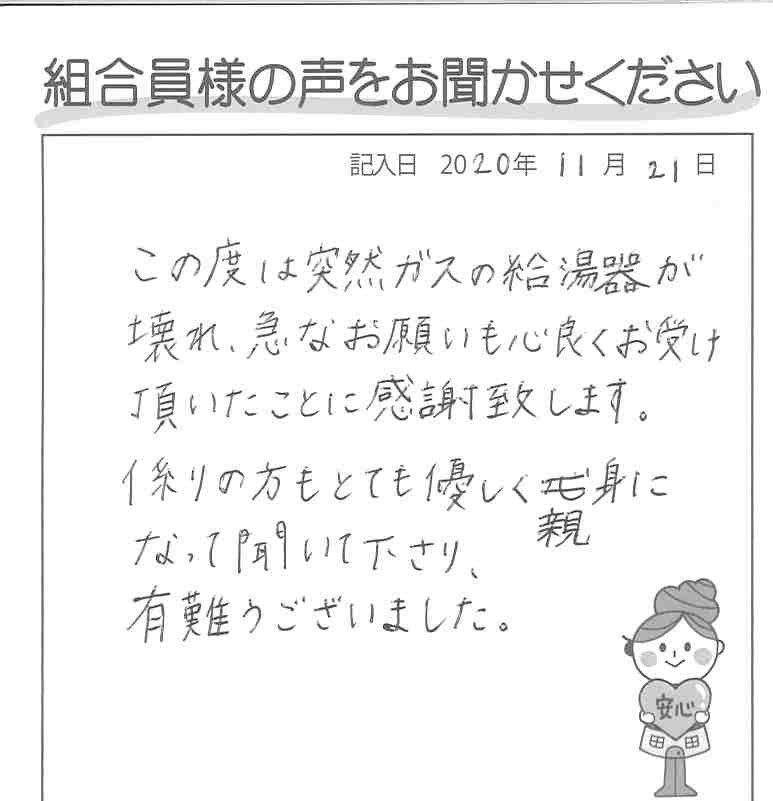 組合員様の声をお聞かせください
記入日 2020年 11月 21日
この度は突然ガスの給湯器が
壊れ、急なお願いも心良くお受け
頂いたことに感謝致します。
係りの方もとても優しく親身に
なって聞いて下さり、
有難うございました。
安心